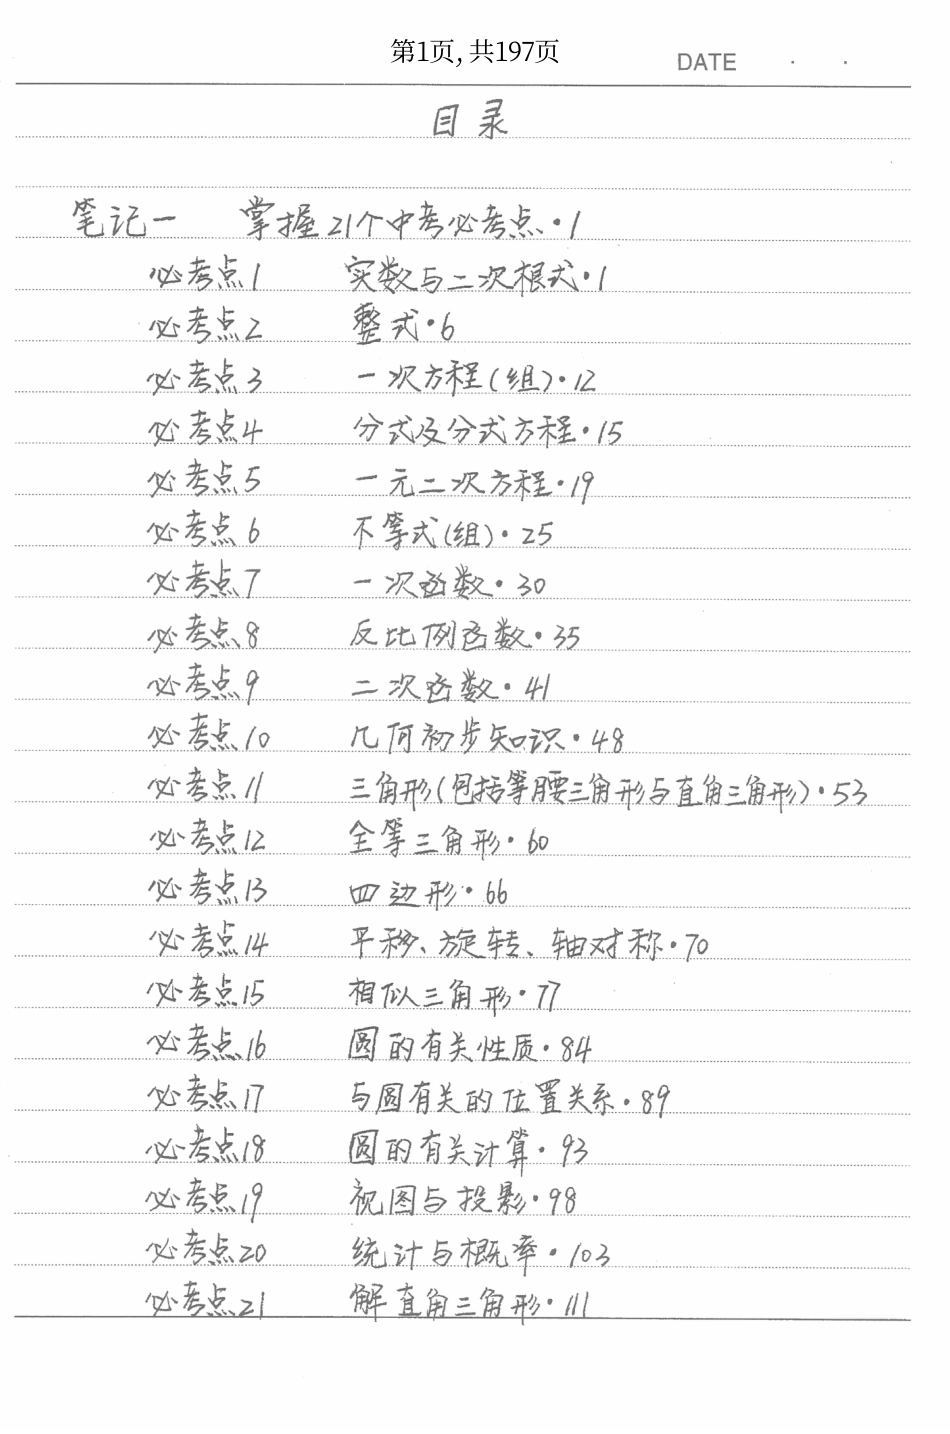 第1页, 共197页
DATE · ·
目录
笔记一 掌握21个中考必考点·1
必考点1 实数与二次根式·1
必考点2 整式·6
必考点3 一次方程(组)·12
必考点4 分式及分式方程·15
必考点5 一元二次方程·19
必考点6 不等式(组)·25
必考点7 一次函数·30
必考点8 反比例函数·35
必考点9 二次函数·41
必考点10 几何初步知识·48
必考点11 三角形(包括等腰三角形与直角三角形)·53
必考点12 全等三角形·60
必考点13 四边形·66
必考点14 平移、旋转、轴对称·70
必考点15 相似三角形·77
必考点16 圆的有关性质·84
必考点17 与圆有关的位置关系·89
必考点18 圆的有关计算·93
必考点19 视图与投影·98
必考点20 统计与概率·103
必考点21 解直角三角形·111